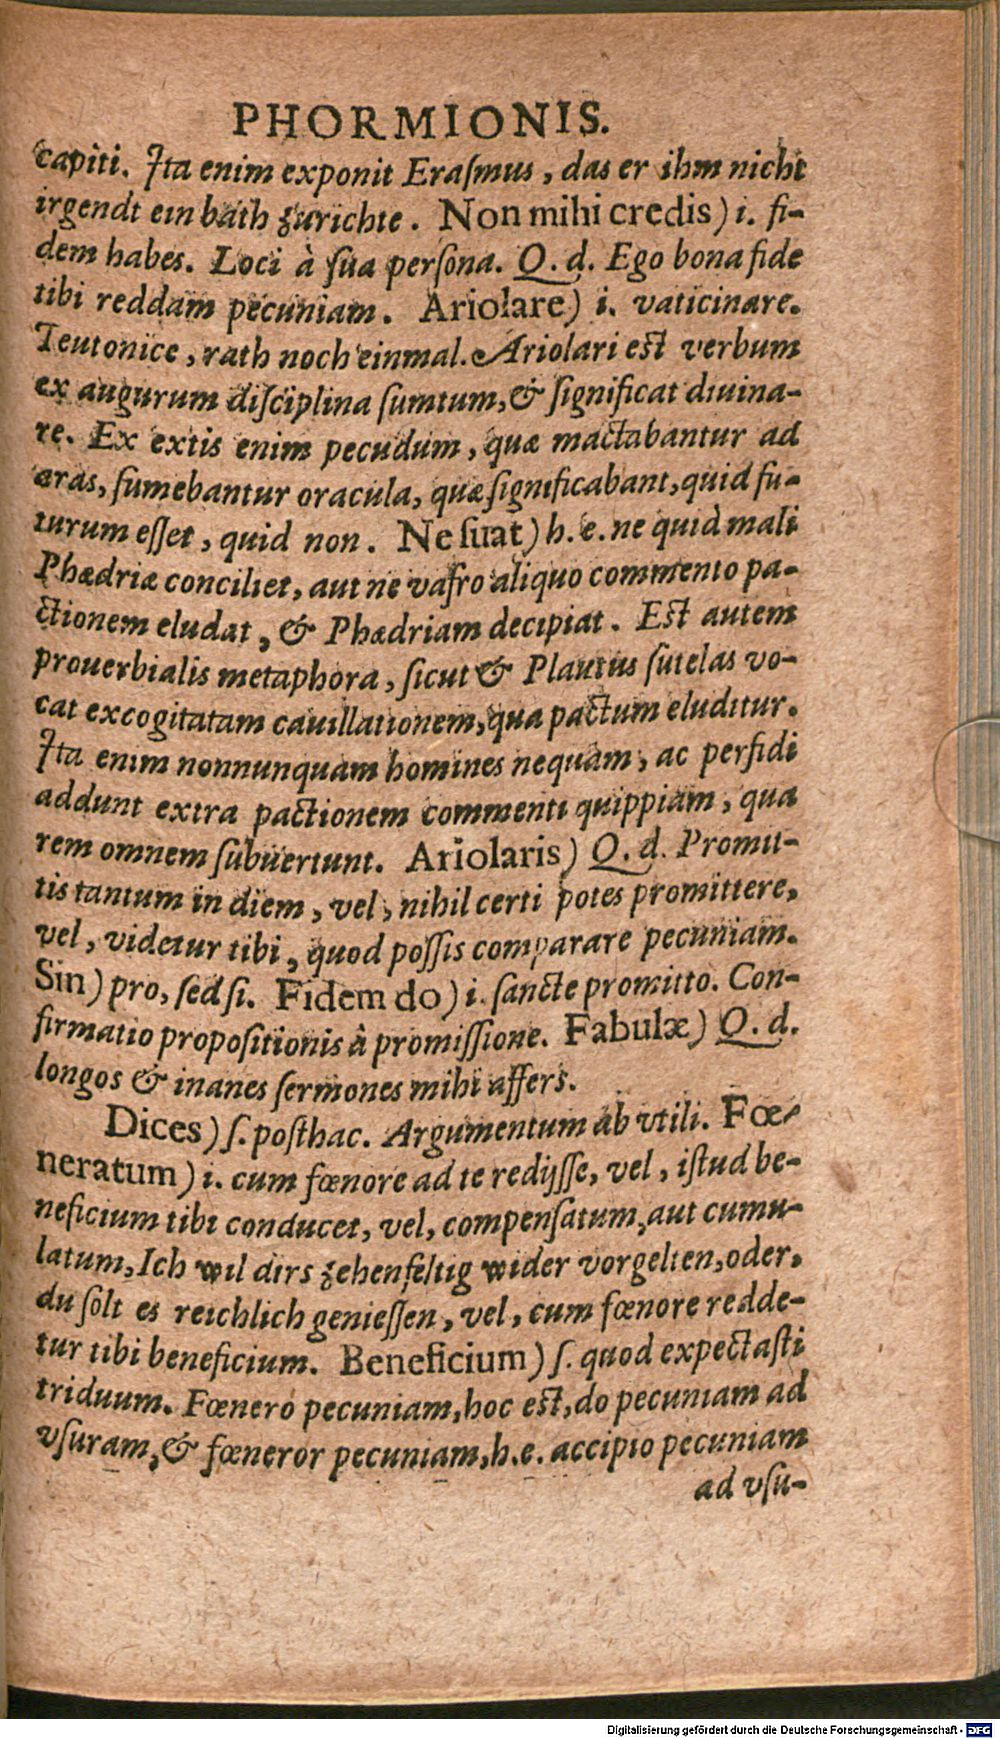 PHORMIONIS.
capiti. Ita enim exponit Eraſmus, das er ihm nicht
irgendt ein bath zurichte. Non mihi credis) i. fi-
dem habes. Loci à ſua perſona. Q. d. Ego bona fide
tibi reddam pecuniam. Ariolare) i. vaticinare.
Teutonice, rath noch einmal. Ariolari est verbum
ex augurum diſciplina ſumtum, & ſignificat diuina-
re. Ex extis enim pecudum, quæ mactabantur ad
aras, ſumebantur oracula, quæ ſignificabant, quid fu-
turum eſſet, quid non. Ne ſuat) h. e. ne quid mali
Phædriæ conciliet, aut ne vafro aliquo commento pa-
ctionem eludat, & Phædriam decipiat. Est autem
prouerbialis metaphora, ſicut & Plautus ſutelas vo-
cat excogitatam cauillationem, qua pactum eluditur.
Ita enim nonnunquam homines nequam, ac perfidi
addunt extra pactionem commenti quippiam, qua
rem omnem ſubuertunt. Ariolaris) Q. d. Promit-
tis tantum in diem, vel, nihil certi potes promittere,
vel, videtur tibi, quod poſſis comparare pecuniam.
Sin) pro, ſed ſi. Fidem do) i. ſancte promitto. Con-
firmatio propoſitionis à promiſſione. Fabulæ) Q. d.
longos & inanes ſermones mihi affers.
Dices) ſ. poſthac. Argumentum ab vtili. Fœ-
neratum) i. cum fœnore ad te redijſſe, vel, iſtud be-
neficium tibi conducet, vel, compenſatum, aut cumu-
latum, Ich wil dirs zehenfeltig wider vorgelten, oder,
du ſolt es reichlich genieſſen, vel, cum fœnore redde-
tur tibi beneficium. Beneficium) ſ. quod expectaſti
triduum. Fœnero pecuniam, hoc est, do pecuniam ad
vſuram, & fœneror pecuniam, h. e. accipio pecuniam
ad vſu-
Digitalisierung gefördert durch die Deutsche Forschungsgemeinschaft - DFG